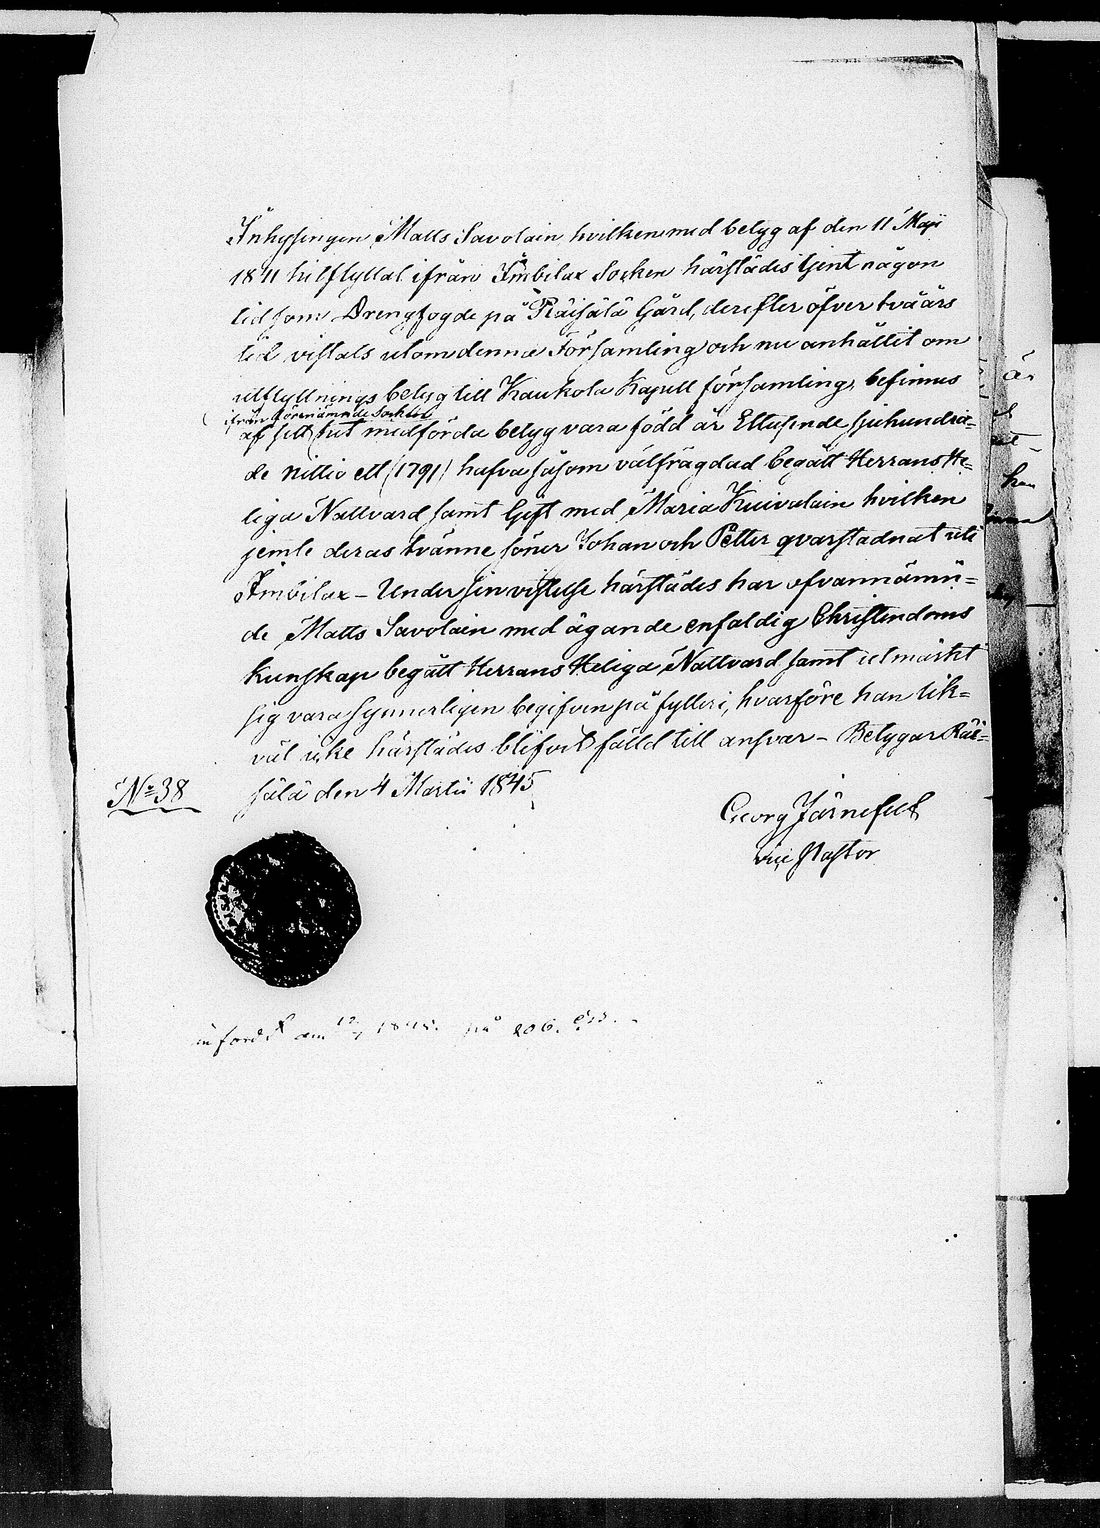 Inhysingen Matts Savolain hvilken med betyg af den 11 Maji
1841 hitflyttat ifrån Imbilax Socken härstädes tjent någon
tid som Drengfogde på Räisälä Gård, derefter öfver två års
tid vistats utom denna Församling och nu anhållit om
utflyttnings betyg till Kaukola Kapell församling, befinnes
ifrån förenämnde Socken
af sitt hit medförda betyg vara född år Ettusende sjuhundra=
de nittio ett (1791) hafva såsom välfrägdad begått Herrans He=
liga Nattvard samt Gift med Maria Kuivalain hvilken
jemte deras tvänne söner Johan och Petter qvarstadnat uti
Imbilax - Under sin vistelse härstädes har ofvannämn=
de Matts Savolain med ägande enfaldig Christendoms
kunskap begått Herrans Heliga Nattvard samt utmärkt
sig vara synnerligen begifven på fylleri, hvarföre han lik=
väl icke härstädes blifvit fälld till ansvar - Betygar Räi=
N:o 38 sälä den 4 Martii 1845
Georg Järnefelt
vice Pastor
införd am 1845. på 206.